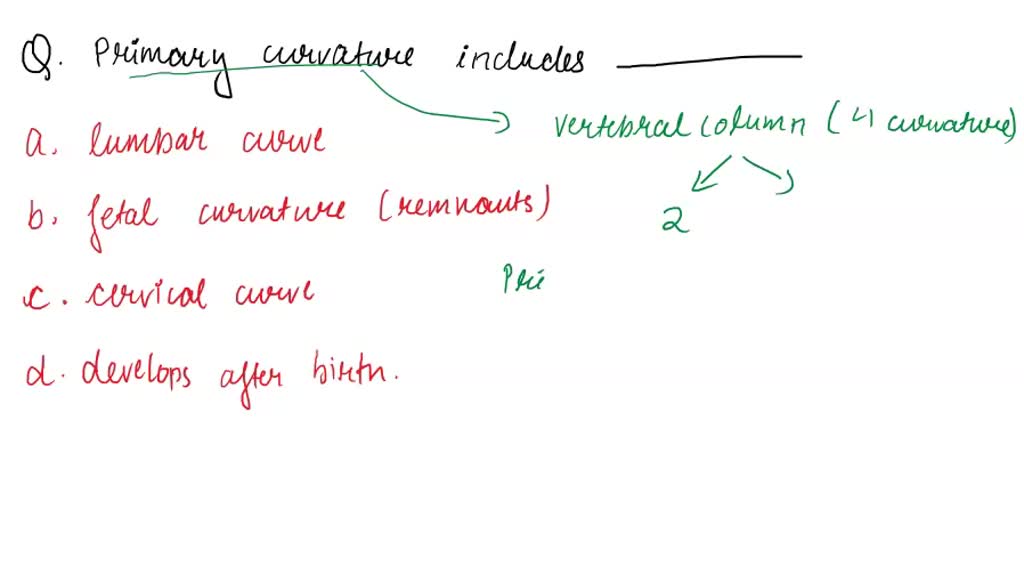 Q. Primary curvature includes
vertebral column (4 curvature)
a. lumbar curve
b. fetal curvature (remnants)
2
c. cervical curve
Pri
d. develops after birth.